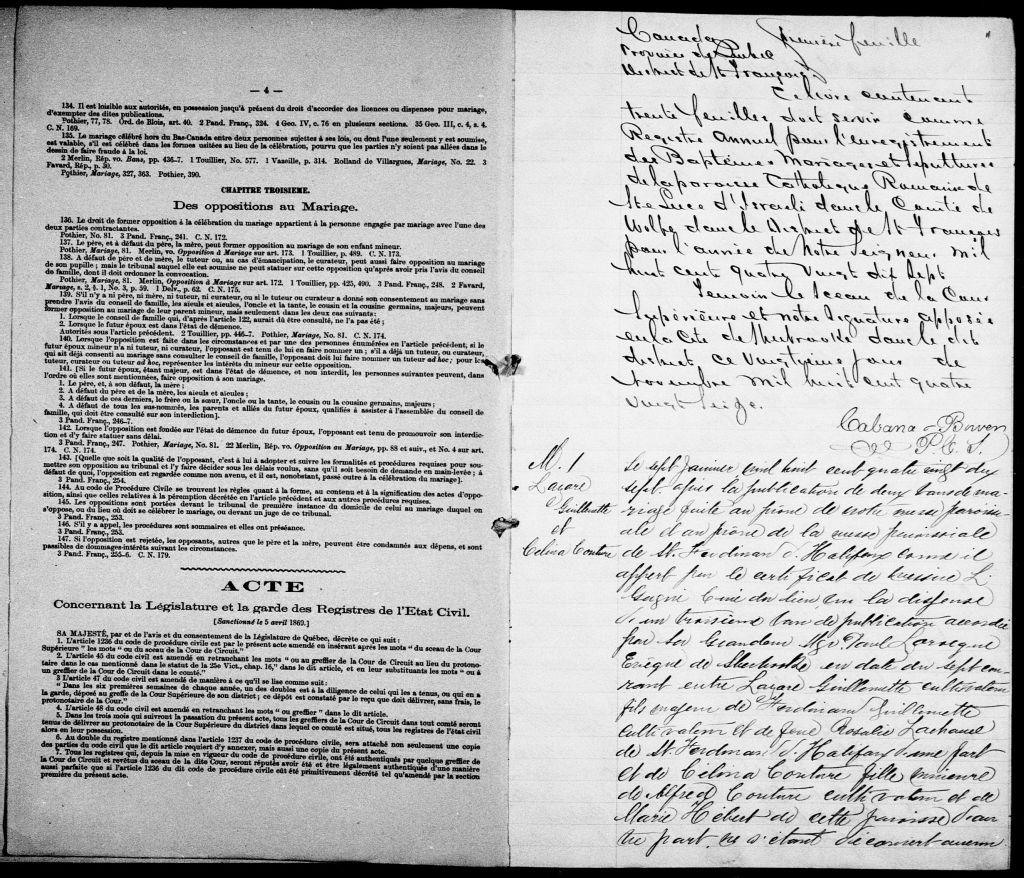 — 4 —
134. Il est loisible aux autorités, en possession jusqu'à présent du droit d'accorder des licences ou dispenses pour mariage,
d'exempter des dites publications.
Pothier, 77, 78. Ord. de Blois, art. 40. 2 Pand. Franç., 324. 4 Geo. IV, c. 76 en plusieurs sections. 35 Geo. III, c. 4, s. 4.
C. N. 169.
135. Le mariage célébré hors du Bas-Canada entre deux personnes sujettes à ses lois, ou dont l'une seulement y est soumise,
est valable, s'il est célébré dans les formes usitées au lieu de la célébration, pourvu que les parties n'y soient pas allées dans le
dessin de faire fraude à la loi.
2 Merlin, Rép. vo. Bans, pp. 436-7. 1 Touillier, No. 577. 1 Vazeille, p. 314. Rolland de Villargues, Mariage, No. 22. 3
Favard, Rép., p. 30.
Pothier, Mariage, 327, 363. Pothier, 390.
CHAPITRE TROISIEME.
Des oppositions au Mariage.
136. Le droit de former opposition à la célébration du mariage appartient à la personne engagée par mariage avec l'une des
deux parties contractantes.
Pothier, No. 81. 3 Pand. Franç., 241. C. N. 172.
137. Le père, et à défaut du père, la mère, peut former opposition au mariage de son enfant mineur.
Pothier, Mariage, 81. Merlin, vo. Opposition à Mariage sur art. 173. 1 Touillier, p. 489. C. N. 173.
138. A défaut de père et de mère, le tuteur ou, au cas d'émancipation, le curateur, peut aussi faire opposition au mariage
de son pupille ; mais le tribunal auquel elle est soumise ne peut statuer sur cette opposition qu'après avoir pris l'avis du conseil
de famille, dont il doit ordonner la convocation.
Pothier, Mariage, 81. Merlin, Opposition à Mariage sur art. 172. 1 Touillier, pp. 425, 490. 3 Pand. Franç., 248. 2 Favard,
Mariage, s. 2, § 1, No. 3, p. 59. 1 Delv., p. 62. C. N. 175.
139. S'il n'y a ni père, ni mère, ni tuteur, ni curateur, ou si le tuteur ou curateur a donné son consentement au mariage sans
prendre l'avis du conseil de famille, les aïeuls et aïeules, l'oncle et la tante, le cousin et la cousine germains, majeurs, peuvent
former opposition au mariage de leur parent mineur, mais seulement dans les deux cas suivants:
1. Lorsque le conseil de famille qui, d'après l'article 122, aurait dû être consulté, ne l'a pas été ;
2. Lorsque le futur époux est dans l'état de démence.
Autorités sous l'article précédent. 2 Touillier, pp. 446-7. Pothier, Mariage, No. 81. C. N. 174.
140. Lorsque l'opposition est faite dans les circonstances et par une des personnes énumérées en l'article précédent, si le
futur époux mineur n'a ni tuteur, ni curateur, l'opposant est tenu de lui en faire nommer un ; s'il a déjà un tuteur, ou curateur,
qui ait déjà consenti au mariage sans consulter le conseil de famille, l'opposant doit lui faire nommer un tuteur ad hoc ; pour le
tuteur, curateur ou tuteur ad hoc, représenter les intérêts du mineur sur cette opposition.
141. [Si le futur époux, étant majeur, est dans l'état de démence, et non interdit, les personnes suivantes peuvent, dans
l'ordre où elles sont mentionnées, faire opposition à son mariage.
1. Le père, et, à son défaut, la mère ;
2. A défaut du père et de la mère, les aïeuls et aïeules ;
3. A défaut de ces derniers, le frère ou la sœur, l'oncle ou la tante, le cousin ou la cousine germains, majeurs ;
4. A défaut de tous les sus-nommés, les parents et alliés du futur époux, qualifiés à assister à l'assemblée du conseil de
famille, qui doit être consulté sur son interdiction].
3 Pand. Franç., 246-7.
142. Lorsque l'opposition est fondée sur l'état de démence du futur époux, l'opposant est tenu de promouvoir son interdic-
tion et d'y faire statuer sans délai.
3 Pand. Franç., 247. Pothier, Mariage, No. 81. 22 Merlin, Rép, vo. Opposition au Mariage, pp. 88 et suiv., et No. 4 sur art.
174. C. N. 174.
143. [Quelle que soit la qualité de l'opposant, c'est à lui à adopter et suivre les formalités et procédures requises pour sou-
mettre son opposition au tribunal et l'y faire décider sous les délais voulus, sans qu'il soit besoin de demande en main-levée ; à
défaut de quoi, l'opposition est regardée comme non avenu, et il est, nonobstant, passé outre à la célébration du mariage].
3 Pand. Franç., 254.
144. Au code de Procédure Civile se trouvent les règles quant à la forme, au contenu et à la signification des actes d'oppo-
sition, ainsi que celles relatives à la péremption décrétée en l'article précédent et aux autres procédures requises.
145. Les oppositions sont portées devant le tribunal de première instance du domicile de celui au mariage duquel on
s'oppose, ou du lieu où doit se célébrer le mariage, ou devant un juge de ce tribunal.
3 Pand. Franç., 253.
146. S'il y a appel, les procédures sont sommaires et elles ont préséance.
3 Pand. Franç., 253.
147. Si l'opposition est rejetée, les opposants, autres que le père et la mère, peuvent être condamnés aux dépens, et sont
passibles de dommages-intérêts suivant les circonstances.
3 Pand. Franç., 255-6. C. N. 179.
ACTE
Concernant la Législature et la garde des Registres de l'Etat Civil.
[Sanctionné le 5 avril 1869.]
SA MAJESTÉ, par et de l'avis et du consentement de la Législature de Québec, décrète ce qui suit :
1. L'article 1236 du code de procédure civile est par le présent acte amendé en insérant après les mots "du sceau de la Cour
Supérieure" les mots "ou du sceau de la Cour de Circuit."
2. L'article 45 du code civil est amendé en retranchant les mots "ou au greffier de la Cour de Circuit au lieu du protono-
taire dans le cas mentionné dans le statut de la 25e Vict, chap. 16," dans le dit article, et en leur substituant les mots "ou à
un greffier de la Cour de Circuit dans le comté."
3 L'article 47 du code civil est amendé de manière à ce qu'il se lise comme suit:
"Dans les six premières semaines de chaque année, un des doubles est à la diligence de celui qui les a tenus, ou qui en a
la garde, déposé au greffe de la Cour Supérieure de son district ; ce dépôt est constaté par le reçu que doit délivrer, sans frais, le
protonotaire de la Cour."
4. L'article 48 du code civil est amendé en retranchant les mots "ou greffier" dans le dit article.
5. Dans les trois mois qui suivront la passation du présent acte, tous les greffiers de la Cour de Circuit dans tout comté seront
tenus de délivrer au protonotaire de la Cour Supérieure du district dans lequel ce comté est situé, tous les registres de l'état civil
alors en leur possession.
6. Au double du registre mentionné dans l'article 1237 du code de procédure civile, sera attaché non seulement une copie
des parties du code civil que le dit article requiert d'y annexer, mais aussi une copie du présent acte.
7. Tous les registres qui, depuis la mise en vigueur du code de procédure civile, ont été authentiqués par quelque greffier de
la Cour de Circuit et revêtus du sceau de la dite Cour, seront réputés avoir été et être légalement authentiqués d'une manière
aussi parfaite que si l'article 1236 du dit code de procédure civile eût été primitivement décrété tel qu'amendé par la section
première du présent acte.
Canada Première feuille
Province de Québec
District de St François
Ce livre contenant
trente feuilles doit servir comme
Registre annuel pour l'enregistrement
des Baptêmes Mariages et sépultures
de la paroisse Catholique Romaine de
Ste Luce d'Israeli dans le Comté de
Wolfe dans le District de St François
pour l'année de Notre Seigneur mil
huit cent quatre vingt dix sept
Témoin le Sceau de la Cour
Supérieure et notre signature apposée
en la Cité de Sherbrooke dans le dit
district ce vingtième jour de
Novembre mil huit cent quatre
vingt seize
Cabana & Bowen
P.C.S.
M. 1
Lazare
Guillemette
et
Célina Couture
Le sept Janvier mil huit cent quatre vingt dix
sept après la publication de deux bans de ma-
riage faite au prône de notre messe parois-
iale et au prône de la messe paroissiale
de St. Ferdinan d'Halifax comme il
appert par le certificat de messire L.
Gagné Curé du lieu, vu la dispense
d'un troisième ban de publication accordée
par Sa Grandeur Mgr. Paul Larocque
Evêque de Sherbrooke en date du sept cou-
rant entre Lazare Guillemette cultivateur
fils majeur de Ferdinan Guillemette
cultivateur et de feue Rosalie Lachance
de St. Ferdinan d'Halifax d'une part
et de Célina Couture fille mineure
de Alfred Couture cultivateur et de
Marie Hébert de cette paroisse d'au-
tre part, ne s'étant découvert aucun